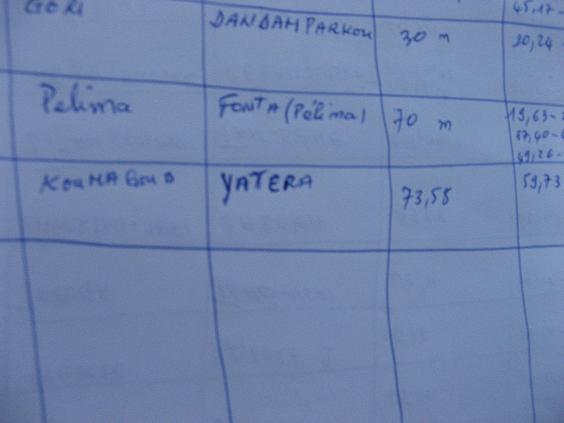 GORI DANDAMPARKOU 30 m 45,17-
30,24-
Pelima FONTA (Pélima) 70 m 19,63-
37,40-
49,26-
KOUMAGOUD YATERA 73,58 59,73